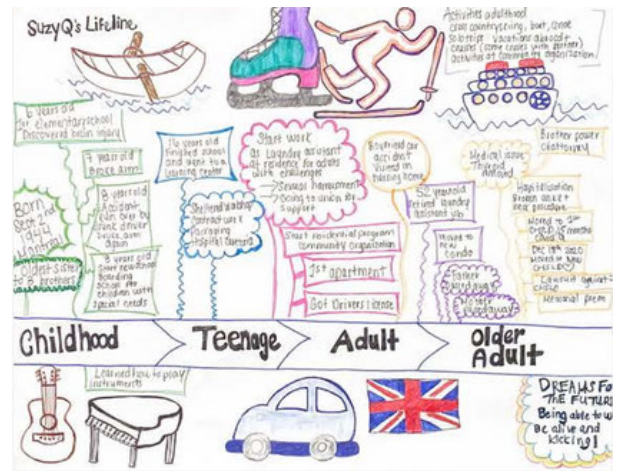 SuzyQ's Lifeline
Activities adulthood
cross country skiing, boat, canoe
vacations abroad +
cruises (some cruises with partner)
activities at community organization.
6 years old
1st elementary school
Discovered brain injury
7 year old
Broke arm
8 year old
Accident
run over by
drunk driver
broke arm
again
8 years old
Start new school
Boarding
School for
children with
special needs
Born
Sept 2nd
1944
Montreal
Oldest sister
to 3 brothers
16 years old
Finished school
and went to a
learning center
Sheltered workshop
contract work
Packaging
Hospital
Start work
as laundry assistant
at residence for adults
with challenges
→ Sexual harassment
→ Going to union for
support
Start residential program
community organization
1st apartment
Got Drivers license
Boyfriend car
accident
nursing home
52 years old
retired laundry
assistant job
Moved to
new
condo
Father
passed away
Mother
passed away
Medical issue
Thyroid
removed
Brother power
of attorney
Hospitalization
Broken ankle +
new procedure
Moved to 1st
CHSLD 15 months
Covid 19
Dec 18th 2020
Moved to new
CHSLD
Lawsuit against
CHSLD
Personal poem
Childhood
Teenage
Adult
Older
Adult
Learned how to play
instruments
DREAMS FO
THE FUTURE
Being able to w
Be alive and
kicking!